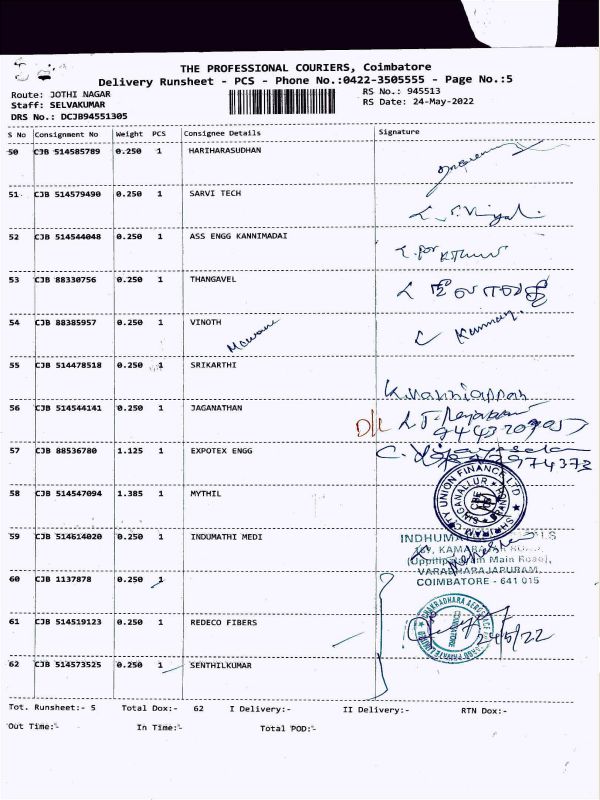 THE PROFESSIONAL COURIERS, Coimbatore
Delivery Runsheet - PCS - Phone No.:0422-3505555 - Page No.:5
Route: JOTHI NAGAR
RS No.: 945513
Staff: SELVAKUMAR
RS Date: 24-May-2022
DRS No.: DCJB94551305
S No Consignment No Weight PCS Consignee Details Signature
50 CJB 514585789 0.250 1 HARIHARASUDHAN
51 CJB 514579490 0.250 1 SARVI TECH
52 CJB 514544048 0.250 1 ASS ENGG KANNIMADAI
53 CJB 88330756 0.250 1 THANGAVEL
54 CJB 88385957 0.250 1 VINOTH
55 CJB 514478518 0.250 1 SRIKARTHI
56 CJB 514544141 0.250 1 JAGANATHAN
57 CJB 88536780 1.125 1 EXPOTEX ENGG
58 CJB 514547094 1.385 1 MYTHIL
SHRIRAM CITY UNION FINANCE LTD
59 CJB 514614020 0.250 1 INDUMATHI MEDI
VARADHARAJAPURAM,
COIMBATORE - 641 015
60 CJB 1137878 0.250 1
61 CJB 514519123 0.250 1 REDECO FIBERS
24/5/22
62 CJB 514573525 0.250 1 SENTHILKUMAR
Tot. Runsheet:- 5 Total Dox:- 62 I Delivery:- II Delivery:- RTN Dox:-
Out Time:- In Time:- Total POD:-